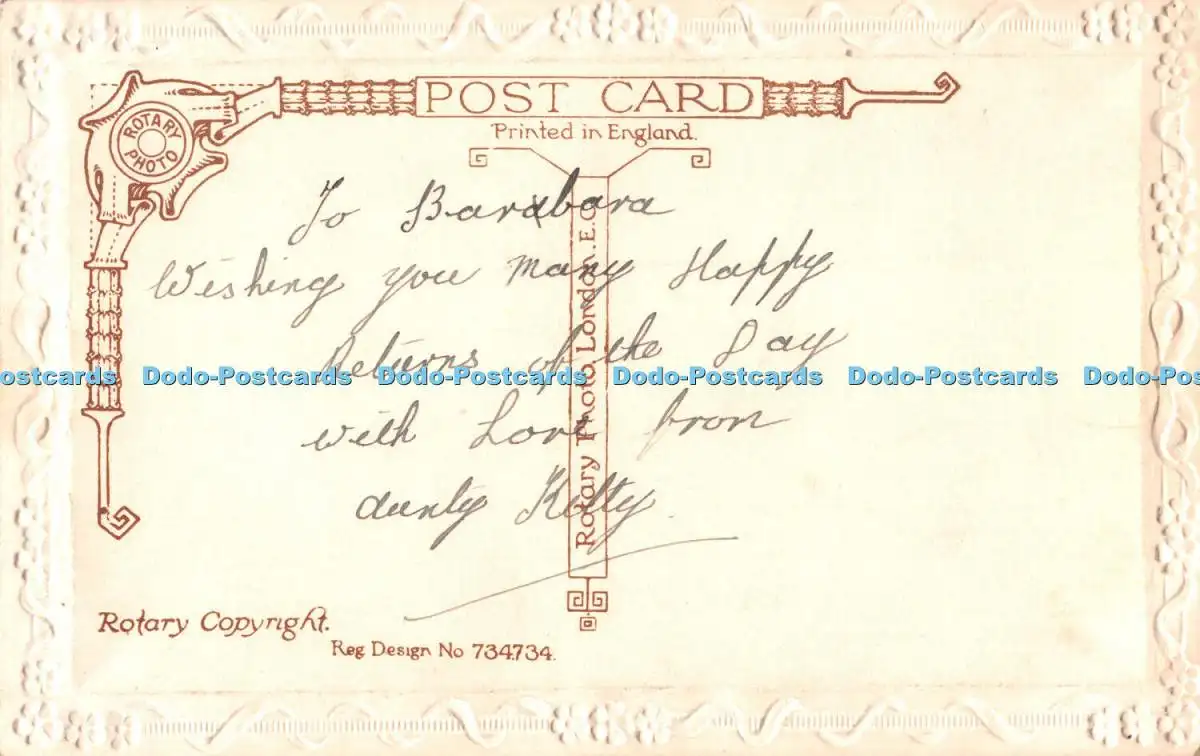 POST CARD
Printed in England.
ROTARY PHOTO
To Barbara
Wishing you Many Happy
Returns of the Day
with Love from
Aunty Kitty
Rotary Photo, London, E.C.
Dodo-Postcards Dodo-Postcards Dodo-Postcards Dodo-Postcards
Rotary Copyright.
Reg Design No 734734.